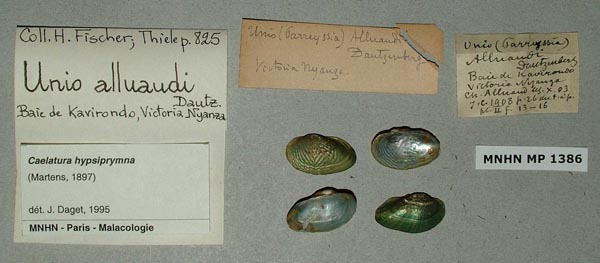 Coll. H. Fischer, Thiele p. 825
Unio alluaudi
Dautz.
Baie de Kavirondo, Victoria Nyanza
Caelatura hypsiprymna
(Martens, 1897)
dét. J. Daget, 1995
MNHN - Paris - Malacologie
Unio (Parreyssia) Alluaudi
Dautzenberg
Victoria Nyanza.
Unio (Parreyssia)
Alluaudi
Dautzenberg
Baie de Kavirondo
Victoria Nyanza
Ch. Alluaud
1908 p. 26
pl. II f. 13-16
MNHN MP 1386